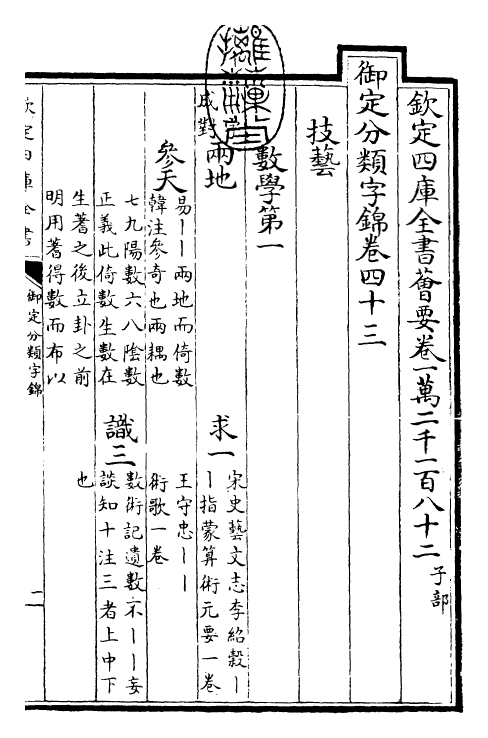 欽定四庫全書薈要卷一萬二千一百八十二 子部
御定分類字錦卷四十三
技藝
數學第一
成對
兩地
求一
宋史藝文志李紹穀丨
丨指蒙算術元要一卷
王守忠丨丨
術歌一卷
參天
易丨丨兩地而倚數
韓注參奇也兩耦也
七九陽數六八陰數
正義此倚數生數在
生蓍之後立卦之前
明用蓍得數而布以
識三
數術記遺數不丨丨妄
談知十注三者上中下
也
欽定四庫全書
御定分類字錦
二